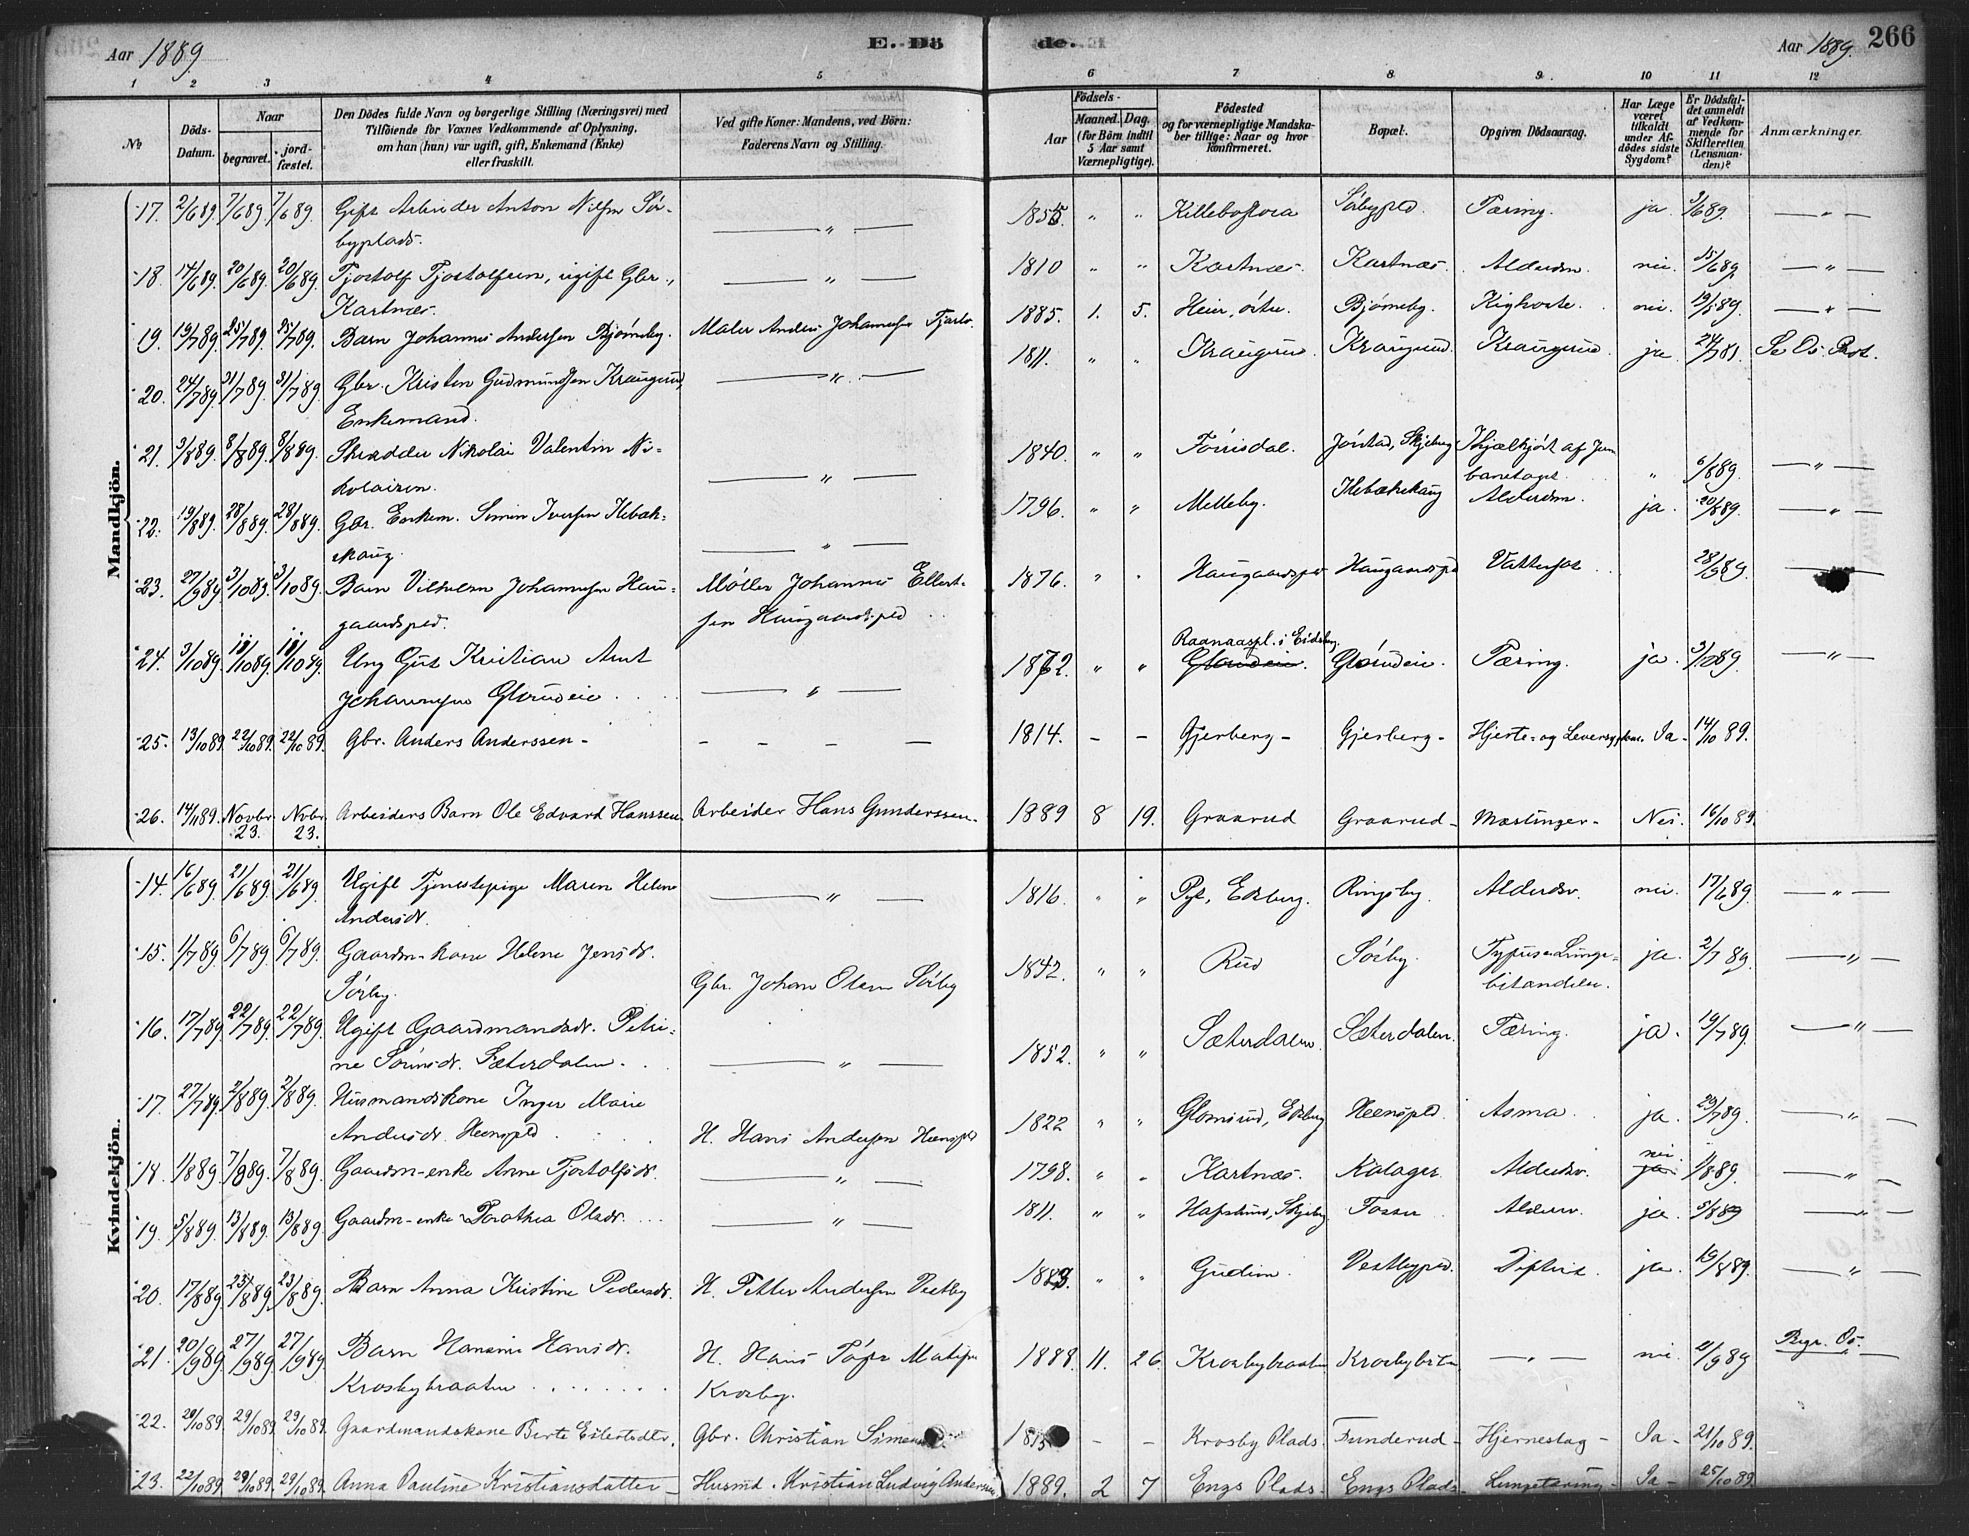 Aar 1889
E. Dö
de.
Aar 1889.
266
1 2 3 4 5 6 7 8 9. 10 11 12
No
Döds-Datum.
Naar
begravet.
jord-fæstet.
Den Dödes fulde Navn og borgerlige Stilling (Næringsvei) med
Tilföiende for Voxnes Vedkommende af Oplysning,
om han (hun) var ugift, gift, Enkemand (Enke)
eller fraskilt.
Ved gifte Koner: Mandens, ved Börn:
Faderens Navn og Stilling.
Födsels-
Aar
Maaned. Dag.
(for Börn indtil
5 Aar samt
Værnepligtige).
Födested
og for værnepligtige Mandska-
ber tillige: Naar og hvor
konfirmeret.
Bopæl.
Opgiven Dödsaarsag.
Har Læge
været
tilkaldt
under Af-
dödes sidste
Sygdom?
Er Dödsfal-
det anmeldt
af Vedkom-
mende for
Skifteretten
(Lensman-
den)?
Anmærkninger.
Mandkjön.
17. 2/6 89. 7/6 89. 7/6 89. Gift Arbeider Anton Nilsen Sör- — " — 1855 " " Killebostora Sörbypld. Tæring. ja. 3/6 89. — " —
byplads.
18. 14/6 89. 20/6 89. 20/6 89. Tjostolf Tjostolfsen, ugift Gbr., — " — 1810 " " Kartnæs. Kartnæs. Alderdom. nei. 15/6 89. — " —
Kartnæs.
19. 19/7 89. 25/7 89. 25/7 89. Barn Johannes Andersen Bjørneby. Maler Anders Johannesen 1885. 1. 5. Heier, östre. Bjørneby. Kighoste. nei. — " —
20. 24/7 89. 31/7 89. 31/7 89. Gbr. Kristen Gudmundsen Kraugerud, — " — 1811. " " Kraugerud. Kraugerud. Kraugerud. ja.
Enkemand.
21. 3/8 89. 8/8 89. 8/8 89. Skrædder Nikolai Valentin Ni- — " — 1840. " " Törrisdal. Jörstad, Skjeberg Ihjælkjört af Jern " 6/8 89. — " —
kolaisen. banetoget
22. 19/8 89. 28/8 89. 28/8 89. Gbr. Enkem. Simen Iversen Ilebæk- — " — 1796. " " Melleby. Ilebækskaug Alderdom. ja. 20/8 89. — " —
skaug.
23. 27/9 89. 3/10 89. 3/10 89. Barn Vilhelm Johannesen Hau- Møller Johannes Ellert- 1876. " " Haugaardspld Haugaardspld Vattersot 28/9 89.
gaardspld. sen Haugaardspld
24. 3/10 89. 10/10 89. 10/10 89. Ung Gut Kristian Amt — " — 1872. " " Raanaaspl. i Eidsberg Glorudeie. Glorudeie. Tæring. ja. 3/10 89. — " —
Johannesen Glorudeie
25. 13/10 89. 22/10 89. 22/10 89. Gbr. Anders Anderssen - - - - - 1814. - - Gjerberg - Gjerberg - Hjerte- og Leversygdom. Ja - 14/10 89.
26. 14/11 89. Novbr 23. Nvbr 23. Arbeiders Barn Ole Edvard Hanssen. Arbeider Hans Gunderssen. 1889 8 19. Graarud Graarud - Mæslinger - Nei. 16/10 89.
Kvindekjön.
14. 16/6 89. 21/6 89. 21/6 89. Ugift Tjenestepige Maren Helene — " — 1816. " " Pyt, Edsberg. Ringsby. Alderdsv. nei. 17/6 89. — " —
Andersdr.
15. 1/7 89. 6/7 89. 6/7 89. Gaardm-kone Helene Jensdr. Gbr. Johan Olsen Sörby 1842. " " Rud Sörby. Typus Lunge- ja. 2/7 89. — " —
Sörby. betændelse.
16. 17/7 89. 22/7 89. 22/7 89. Ugift Gaardmandsdr. Petri- — " — 1852. " " Sæterdalen. Sæterdalen. Tæring. ja. 19/7 89. — " —
ne Sörensdr. Sæterdalen.
17. 27/7 89. 2/8 89. 2/8 89. Husmandskone Inger Marie H. Hans Andersen Heenspld 1822 " " Glomsrud, Edsberg Heenspld. Asma. ja. 29/7 89. — " —
Andersdr. Heenspld.
18. 1/8 89. 7/8 89. 7/8 89. Gaardm-enke Anne Tjostolfsdr. — " — 1798. " " Kartnæs. Kolager Alderdsv. nei. ja. 1/8 89. — " —
19. 5/8 89. 13/8 89. 13/8 89. Gaardm-enke Dorothea Olsdr. — " — 1811. " " Hafslund, Skjeberg Fosser Alderv. ja. 5/8 89 — " —
20. 17/8 89. 23/8 89. 23/8 89. Barn Anna Kristine Pedersdr. H. Petter Andersen Vestby 1883. " " Gudim. Vestbypld. Difteri. ja. 19/8 89. — " —
21. 20/9 89. 27/9 89. 27/9 89. Barn Hansine Hansdr. H. Hans 1888. 11. 26. Krosbybraaten Krosbybrten — " — nei. 21/9 89 Begr. Os.
Krosbybraaten Krosby.
22. 20/10 89. 29/10 89. 29/10 89. Gaardmandskone Berte Eilertsdtr. Gbr. Christian - - Krosby Plads. Funderud - Hjerneslag - Ja - 21/10 89.
23. 22/10 89. 29/10 89. 29/10 89. Anna Pauline Kristiansdatter - Husmd. Kristian Ludvig Anderssen 1889. 2 7 Engs Plads - Engs Plads - Lungetæring - Ja - 25/10 89.